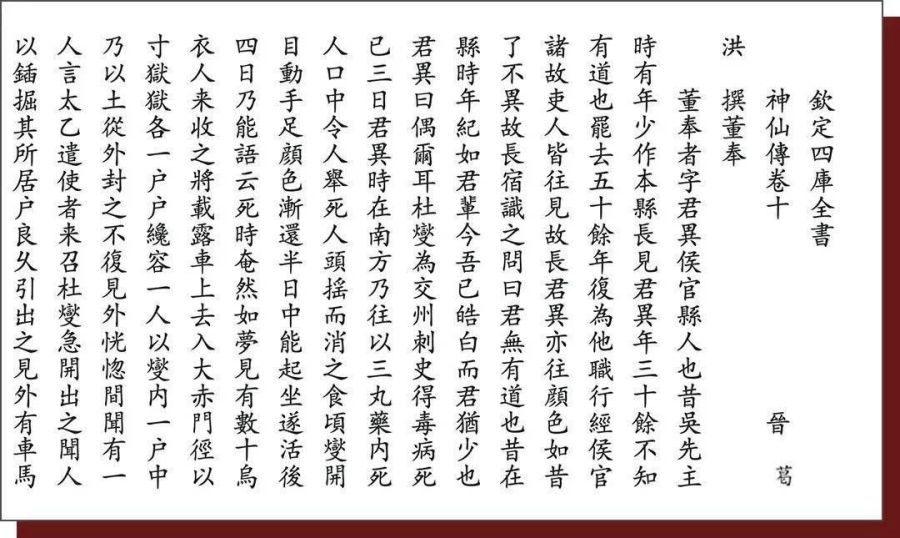 欽定四庫全書
神仙傳卷十 晉 葛
洪 撰董奉
董奉者字君異侯官縣人也昔吳先主
時有年少作本縣長見君異年三十餘不知
有道也罷去五十餘年復為他職行經侯官
諸故吏人皆往見故長君異亦往顔色如昔
了不異故長宿識之問曰君無有道也昔在
縣時年紀如君輩今吾已皓白而君猶少也
君異曰偶爾耳杜燮為交州刺史得毒病死
已三日君異時在南方乃往以三丸藥内死
人口中令人舉死人頭揺而消之食頃燮開
目動手足顔色漸還半日中能起坐遂活後
四日乃能語云死時奄然如夢見有數十烏
衣人来收之將載露車上去入大赤門徑以
寸獄獄各一户户纔容一人以燮内一户中
乃以土從外封之不復見外恍惚間聞有一
人言太乙遣使者来召杜燮急開出之聞人
以鍤掘其所居户良乆引出之見外有車馬